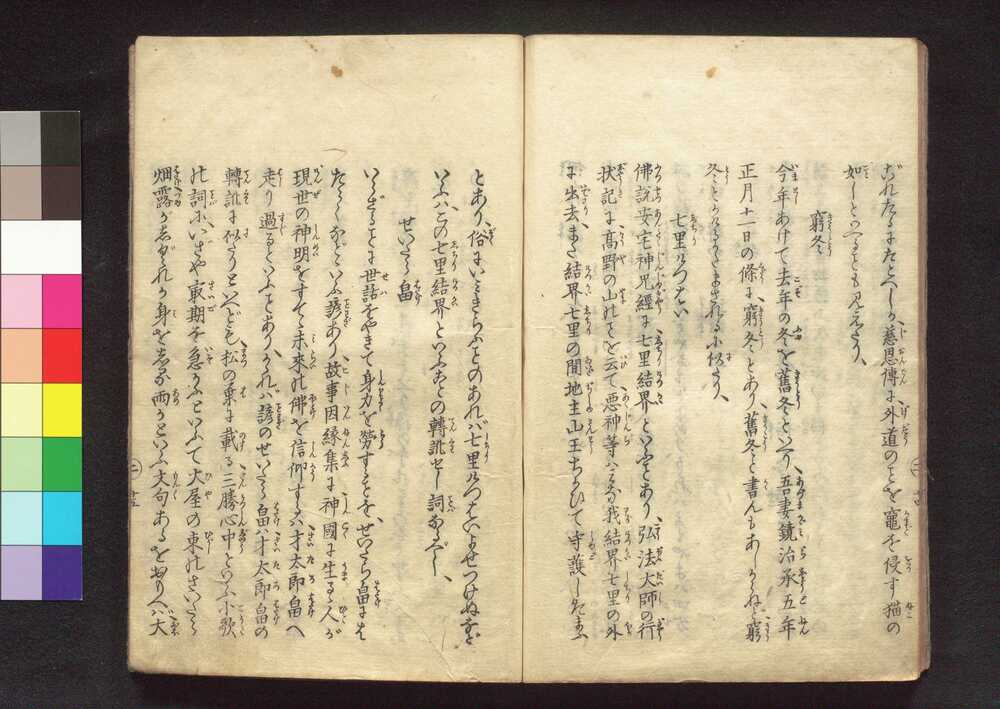 ぶれたるにたとへしか、慈恩傳に、外道のことを竈を侵す猫の
如しといへることも見えたり、
窮冬
今年あけて去年の冬を舊冬といへり、吾妻鏡治承五年
正月十一日の條に、窮冬とあり、舊冬と書んもあしからねど窮
冬とかけるかたまされるに似たり、
七里けつはい
佛説安宅神咒經に七里結界といふことあり、弘法大師の行
状記に、高野の山のことを云て、悪神等はみな我結界七里の外
に出去、また結界七里の間地主山王ちかひて守護したまふ
とあり、俗にいみきらふものあれバ七里けつはいよせつけぬなど
いふハ、この七里結界といふことの轉訛せし詞なるべし、
せいたら畠
いらざることに世話をやきて身力を勞することを、せいたら畠に
たらくなどいふ諺あり、故事因縁集に、神國に生るゝ人が
現世の神明をすてゝ未来の佛を信仰するハ、才太郎畠へ
走り過るといふことあり、かゝれバ諺のせいたら畠ハ才太郎畠の
轉訛に似たりといへども、松の葉に載る三勝心中といふ小歌
の詞に、いざや最期を急がんといふて、火屋の東のさいたら
畑、露がしぐれか身をしる雨かといふ文句あるをおもへバ、大